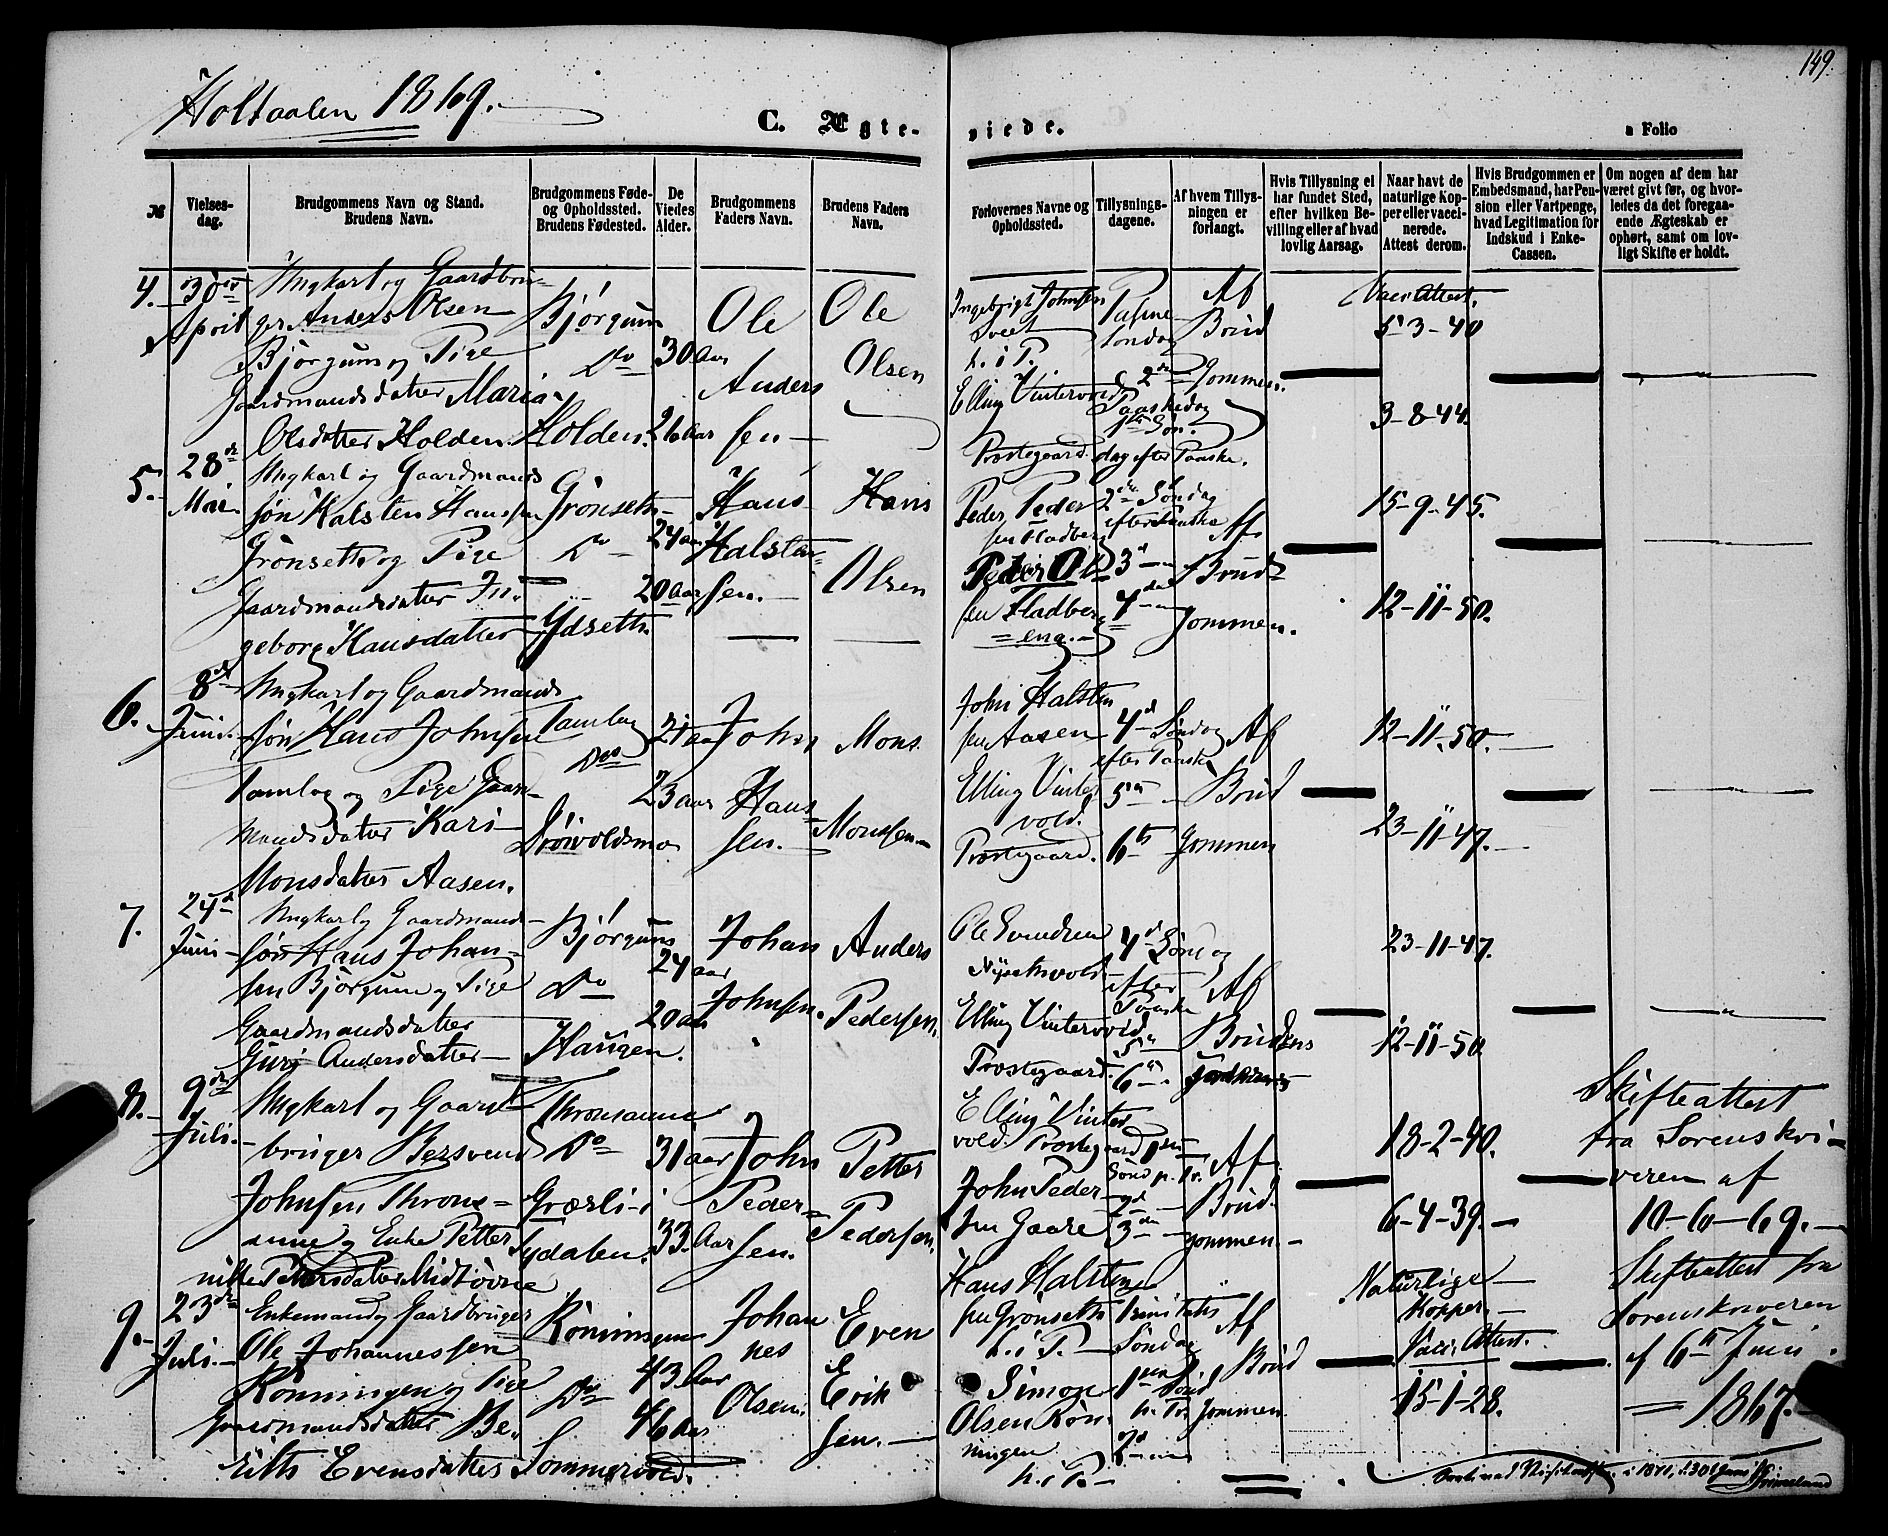 149.
Holtaalen 1869.
C. Ægte-
viede.
a Folio
№
Vielses-
dag.
Brudgommens Navn og Stand.
Brudens Navn.
Brudgommens Føde-
og Opholdssted.
Brudens Fødested.
De
Viedes
Alder.
Brudgommens
Faders Navn.
Brudens Faders
Navn.
Forlovernes Navne og
Opholdssted.
Tillysnings-
dagene.
Af hvem Tillys-
ningen er
forlangt.
Hvis Tillysning ei
har fundet Sted,
efter hvilken Be-
villing eller af hvad
lovlig Aarsag.
Naar havt de
naturlige Kop-
per eller vacci-
nerede.
Attest derom.
Hvis Brudgommen er
Embedsmand, har Pen-
sion eller Vartpenge,
hvad Legitimation for
Indskud i Enke-
Cassen.
Om nogen af dem har
været givt før, og hvor-
ledes da det foregaa-
ende Ægteskab er
ophørt, samt om lov-
ligt Skifte er holdt.
4.
30
April
Ungkarl og Gaardbru-
ger Anders Olsen
Bjørgum og Pige
Gaardmandsdatter Maria
Olsdatter Holden
Bjørgum
Do
Holden.
30 Aar
26 Aar
Ole
Anders
sen
Ole
Olsen
Ingebrigt Johnsen
h. i P.
Elling Vintervold
Præstegaard.
Palme
søndag
2den
Paaskedag
1ste Søn
dag efter Paaske.
Af
Brud
gommen.
Vacc. Attest.
5-3-40
3-8-44.
5.
28de
Mai
Ungkarl og Gaardmands
søn Halsten Hansen
Grønseth og Pige
Gaardmandsdatter In-
geborg Hansdatter
Grønseth
Do
Ydseth
24 aar
20 aar
Hans
Halsten
sen.
Hans
Olsen
Peder Peder
sen Fladberg
Peder Ol
sen Fladberg
eng.
2den Søndag
efter Paaske
3d
4de
Af
Brud
gommen.
15-9-45.
12-11-50.
6.
8de
Juni
Ungkarl og Gaardmands
søn Hans Johnsen
Tamlag og Pige Gaard
mandsdatter Kari
Monsdatter Aasen.
Tamlag
Do
Drøivoldsmo
21 aar
23 aar
John
Hans
sen.
Mons
Monsen
John Halsten
sen Aasen
Elling Vinter
vold.
Præstegaard.
4d Søndag
efter Paaske
5te
6te
Af
Brud
gommen
12-11-50.
23-11-47.
7.
24d
Juni
Ungkarl og Gaardmand
søn Hans Johan-
sen Bjørgum og Pige
Gaardmandsdatter
Guri Andersdatter
Bjørgum
Do
Haugen.
24 aar
20 aar
Johan
Johnsen.
Anders
Pedersen.
Ole Svendsen
Elling Vintervold
Præstegaard.
4d Søndag
efter
Paaske
5te
6te
Af
Brudens
23-11-47.
12-11-50
8.
9de
Juli.
Ungkarl og Gaard
bruger Bersvend
Johnsen Throns-
aune og Enke Petter
nille Pettersdatter Midtøvne
Thronsaune
Do
Græsli i
Tydalen.
31 aar
33 Aar
John
Peder
sen.
Petter
Pedersen.
Elling Vinter
vold. Præstegaard
John Peder
sen Gaare
1ste
Sønd p. Tr.
2d
3die
Af
Brud
gommen.
18-2-40.
6-4-39.
Skifteattest
fra Sorenskri-
veren af
10-6-69.
9.
23de
Juli.
Enkemand og Gaardbruger
Ole Johannessen
Rønningen og Pige
Gaardmandsdatter Be-
ritts Evensdatter
Rønningen
Do
Sommervold.
43 Aar
46 Aar
Johan
nes
Olsen.
Even
Erik
sen.
Hans Halsten
sen Grønseth
h. i P.
Simon
Olsen Røn-
ningen
h. i P.
Trinitatis
Søndag
1ste Sønd
p. Tr.
2d
Af
Brud
gommen
Naturlige
Kopper.
Vacc. Attest.
15-1-28.
Skifteattest fra
Sorenskriveren
af 6te Juni
1867.
i 1871, d. 30 Juni